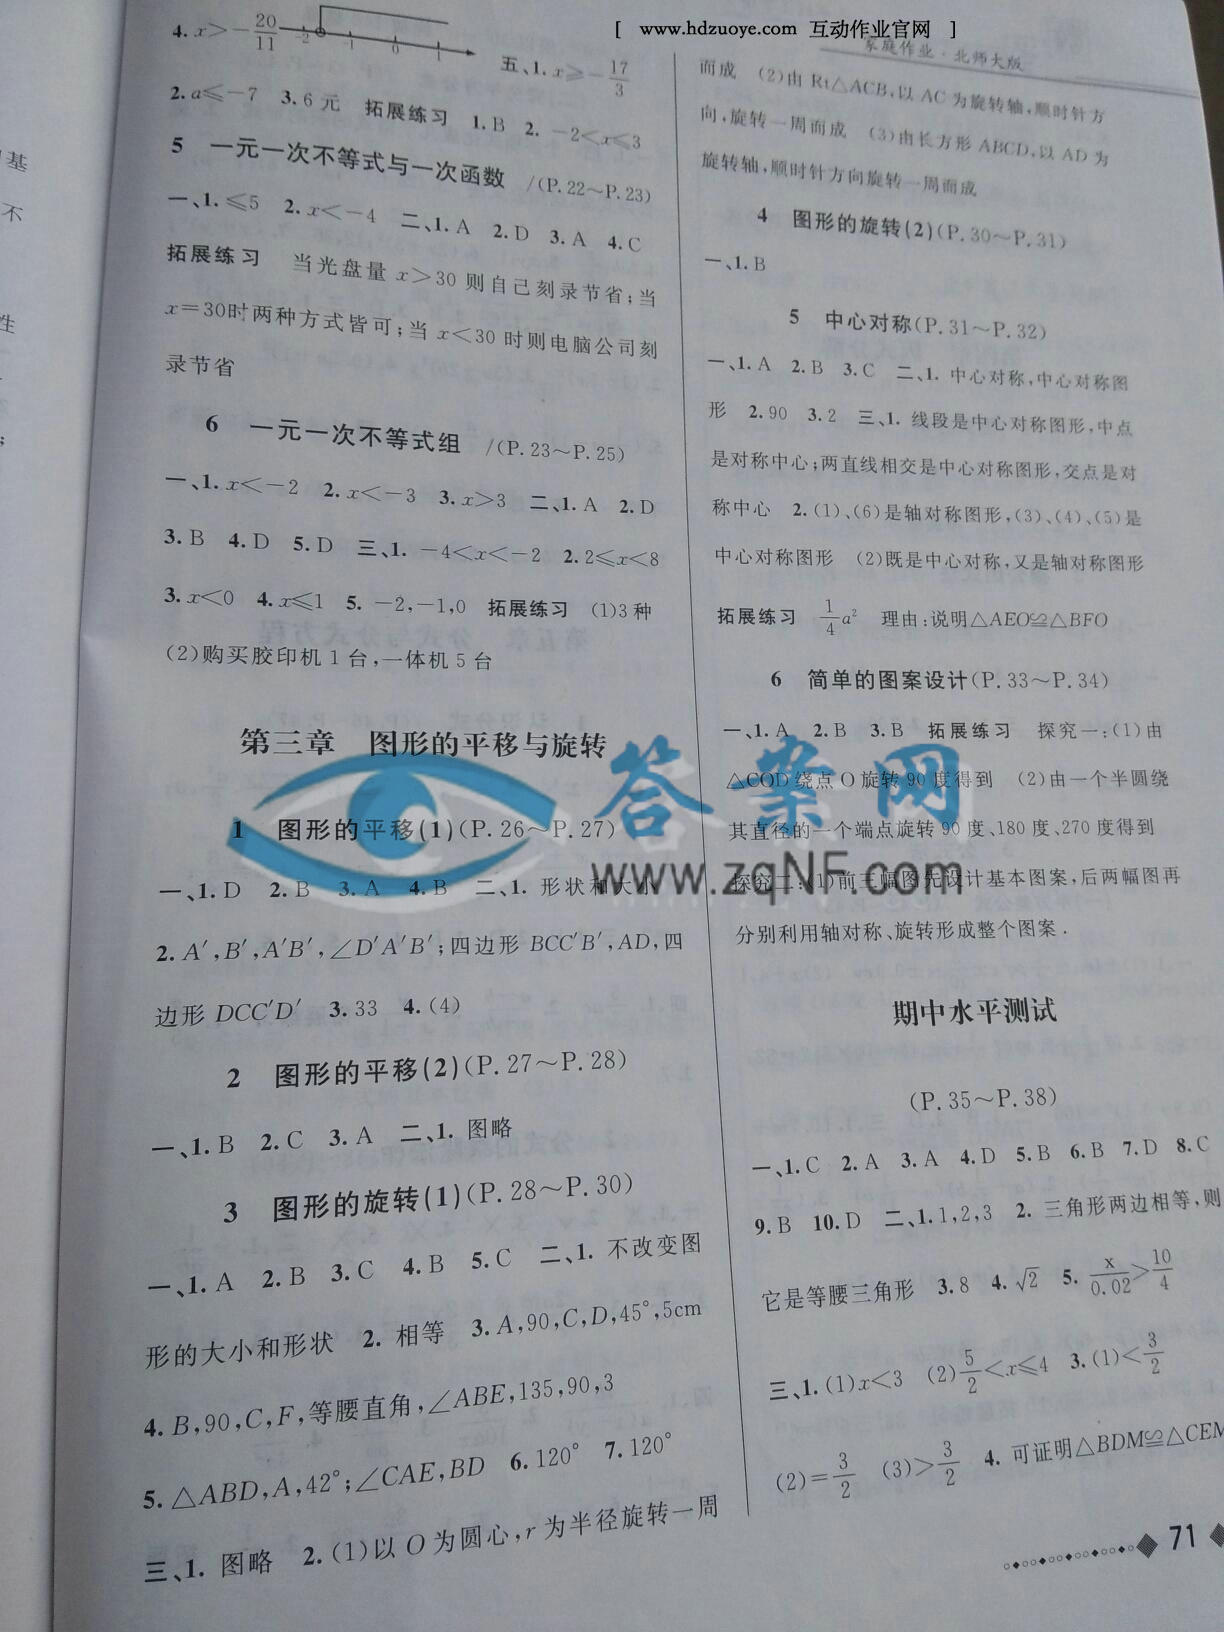 [ www.hdzuoye.com 互动作业官网 ]
家庭作业·北师大版
4. x>-20/11 -2 -1 0 1 五、1. x≥-17/3
2. a≤-7 3. 6元 拓展练习 1. B 2. -2<x≤3
5 一元一次不等式与一次函数 /(P.22~P.23)
一、1. ≤5 2. x<-4 二、1. A 2. D 3. A 4. C
拓展练习 当光盘量 x>30 则自己刻录节省;当
x=30时两种方式皆可;当 x<30 时则电脑公司刻
录节省
6 一元一次不等式组 /(P.23~P.25)
一、1. x<-2 2. x<-3 3. x>3 二、1. A 2. D
3. B 4. D 5. D 三、1. -4<x<-2 2. 2≤x<8
3. x<0 4. x≤1 5. -2,-1,0 拓展练习 (1)3种
(2)购买胶印机1台,一体机5台
第三章 图形的平移与旋转
1 图形的平移(1)(P.26~P.27)
一、1. D 2. B 3. A 4. B 二、1. 形状和大小
2. A′,B′,A′B′,∠D′A′B′;四边形 BCC′B′,AD,四
边形 DCC′D′ 3. 33 4. (4)
2 图形的平移(2)(P.27~P.28)
一、1. B 2. C 3. A 二、1. 图略
3 图形的旋转(1)(P.28~P.30)
一、1. A 2. B 3. C 4. B 5. C 二、1. 不改变图
形的大小和形状 2. 相等 3. A,90,C,D,45°,5cm
4. B,90,C,F,等腰直角,∠ABE,135,90,3
5. △ABD,A,42°;∠CAE,BD 6. 120° 7. 120°
三、1. 图略 2. (1)以 O 为圆心,r 为半径旋转一周
而成 (2)由 Rt△ACB,以 AC 为旋转轴,顺时针方
向,旋转一周而成 (3)由长方形 ABCD,以 AD 为
旋转轴,顺时针方向旋转一周而成
4 图形的旋转(2)(P.30~P.31)
一、1. B
5 中心对称(P.31~P.32)
一、1. A 2. B 3. C 二、1. 中心对称,中心对称图
形 2. 90 3. 2 三、1. 线段是中心对称图形,中点
是对称中心;两直线相交是中心对称图形,交点是对
称中心 2. (1)、(6)是轴对称图形,(3)、(4)、(5)是
中心对称图形 (2)既是中心对称,又是轴对称图形
拓展练习 1/4 a² 理由:说明△AEO≌△BFO
6 简单的图案设计(P.33~P.34)
一、1. A 2. B 3. B 拓展练习 探究一:(1)由
△COD 绕点 O 旋转 90 度得到 (2)由一个半圆绕
其直径的一个端点旋转 90 度、180 度、270 度得到
探究二:(1)前三幅图先设计基本图案,后两幅图再
分别利用轴对称、旋转形成整个图案.
期中水平测试
(P.35~P.38)
一、1. C 2. A 3. A 4. D 5. B 6. B 7. D 8. C
9. B 10. D 二、1. 1,2,3 2. 三角形两边相等,则
它是等腰三角形 3. 8 4. √2 5. x/0.02>10/4
三、1. (1)x<3 (2)5/2<x≤4 3. (1)<3/2
(2)=3/2 (3)>3/2 4. 可证明△BDM≌△CEM
71
答案网
www.zqNF.com
基
不
性